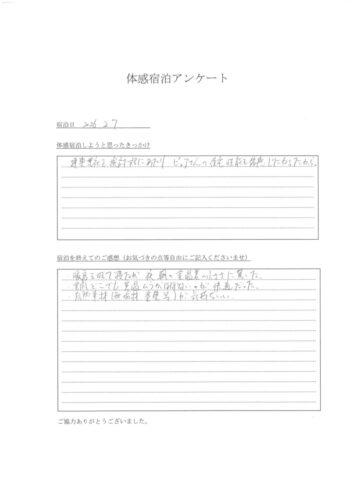 体感宿泊アンケート
宿泊日 2026 2 7
体感宿泊しようと思ったきっかけ
建築会社を検討するにあたり ピュアさんの住宅性能を体感したかったから。
宿泊を終えてのご感想（お気づきの点等自由にご記入くださいませ）
暖房を切って寝たが 夜 朝の室温差の小ささに驚いた。
室内どこでも 室温ムラがほぼないのが 快適だった。
自然素材（無垢材 塗壁等）が気持ちいい。
ご協力ありがとうございました。